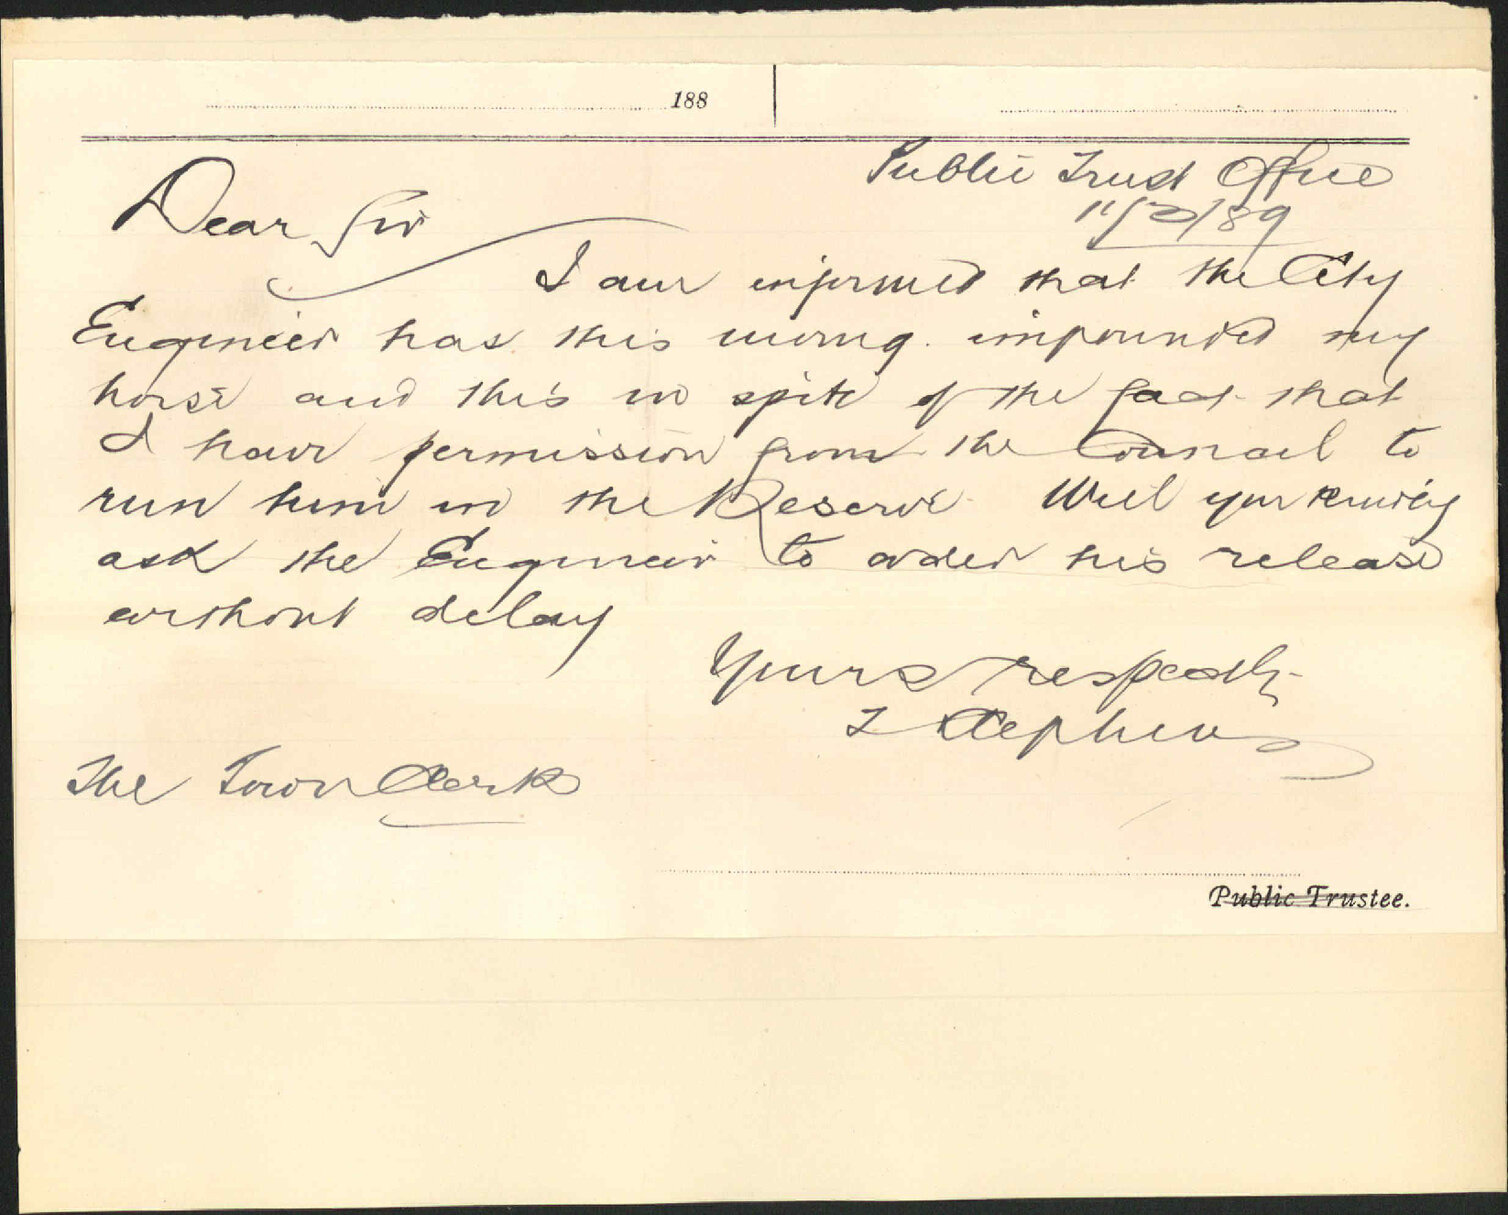 188
Public Trust Office
11/2/89
Dear Sir
I am informed that the City
Engineer has this morng. impounded my
horse and this in spite of the fact that
I have permission from the Council to
run him in the Reserve Will you kindly
ask the Engineer to order his release
without delay
Yours respectly
Stephens
The Town Clerk
Public Trustee.